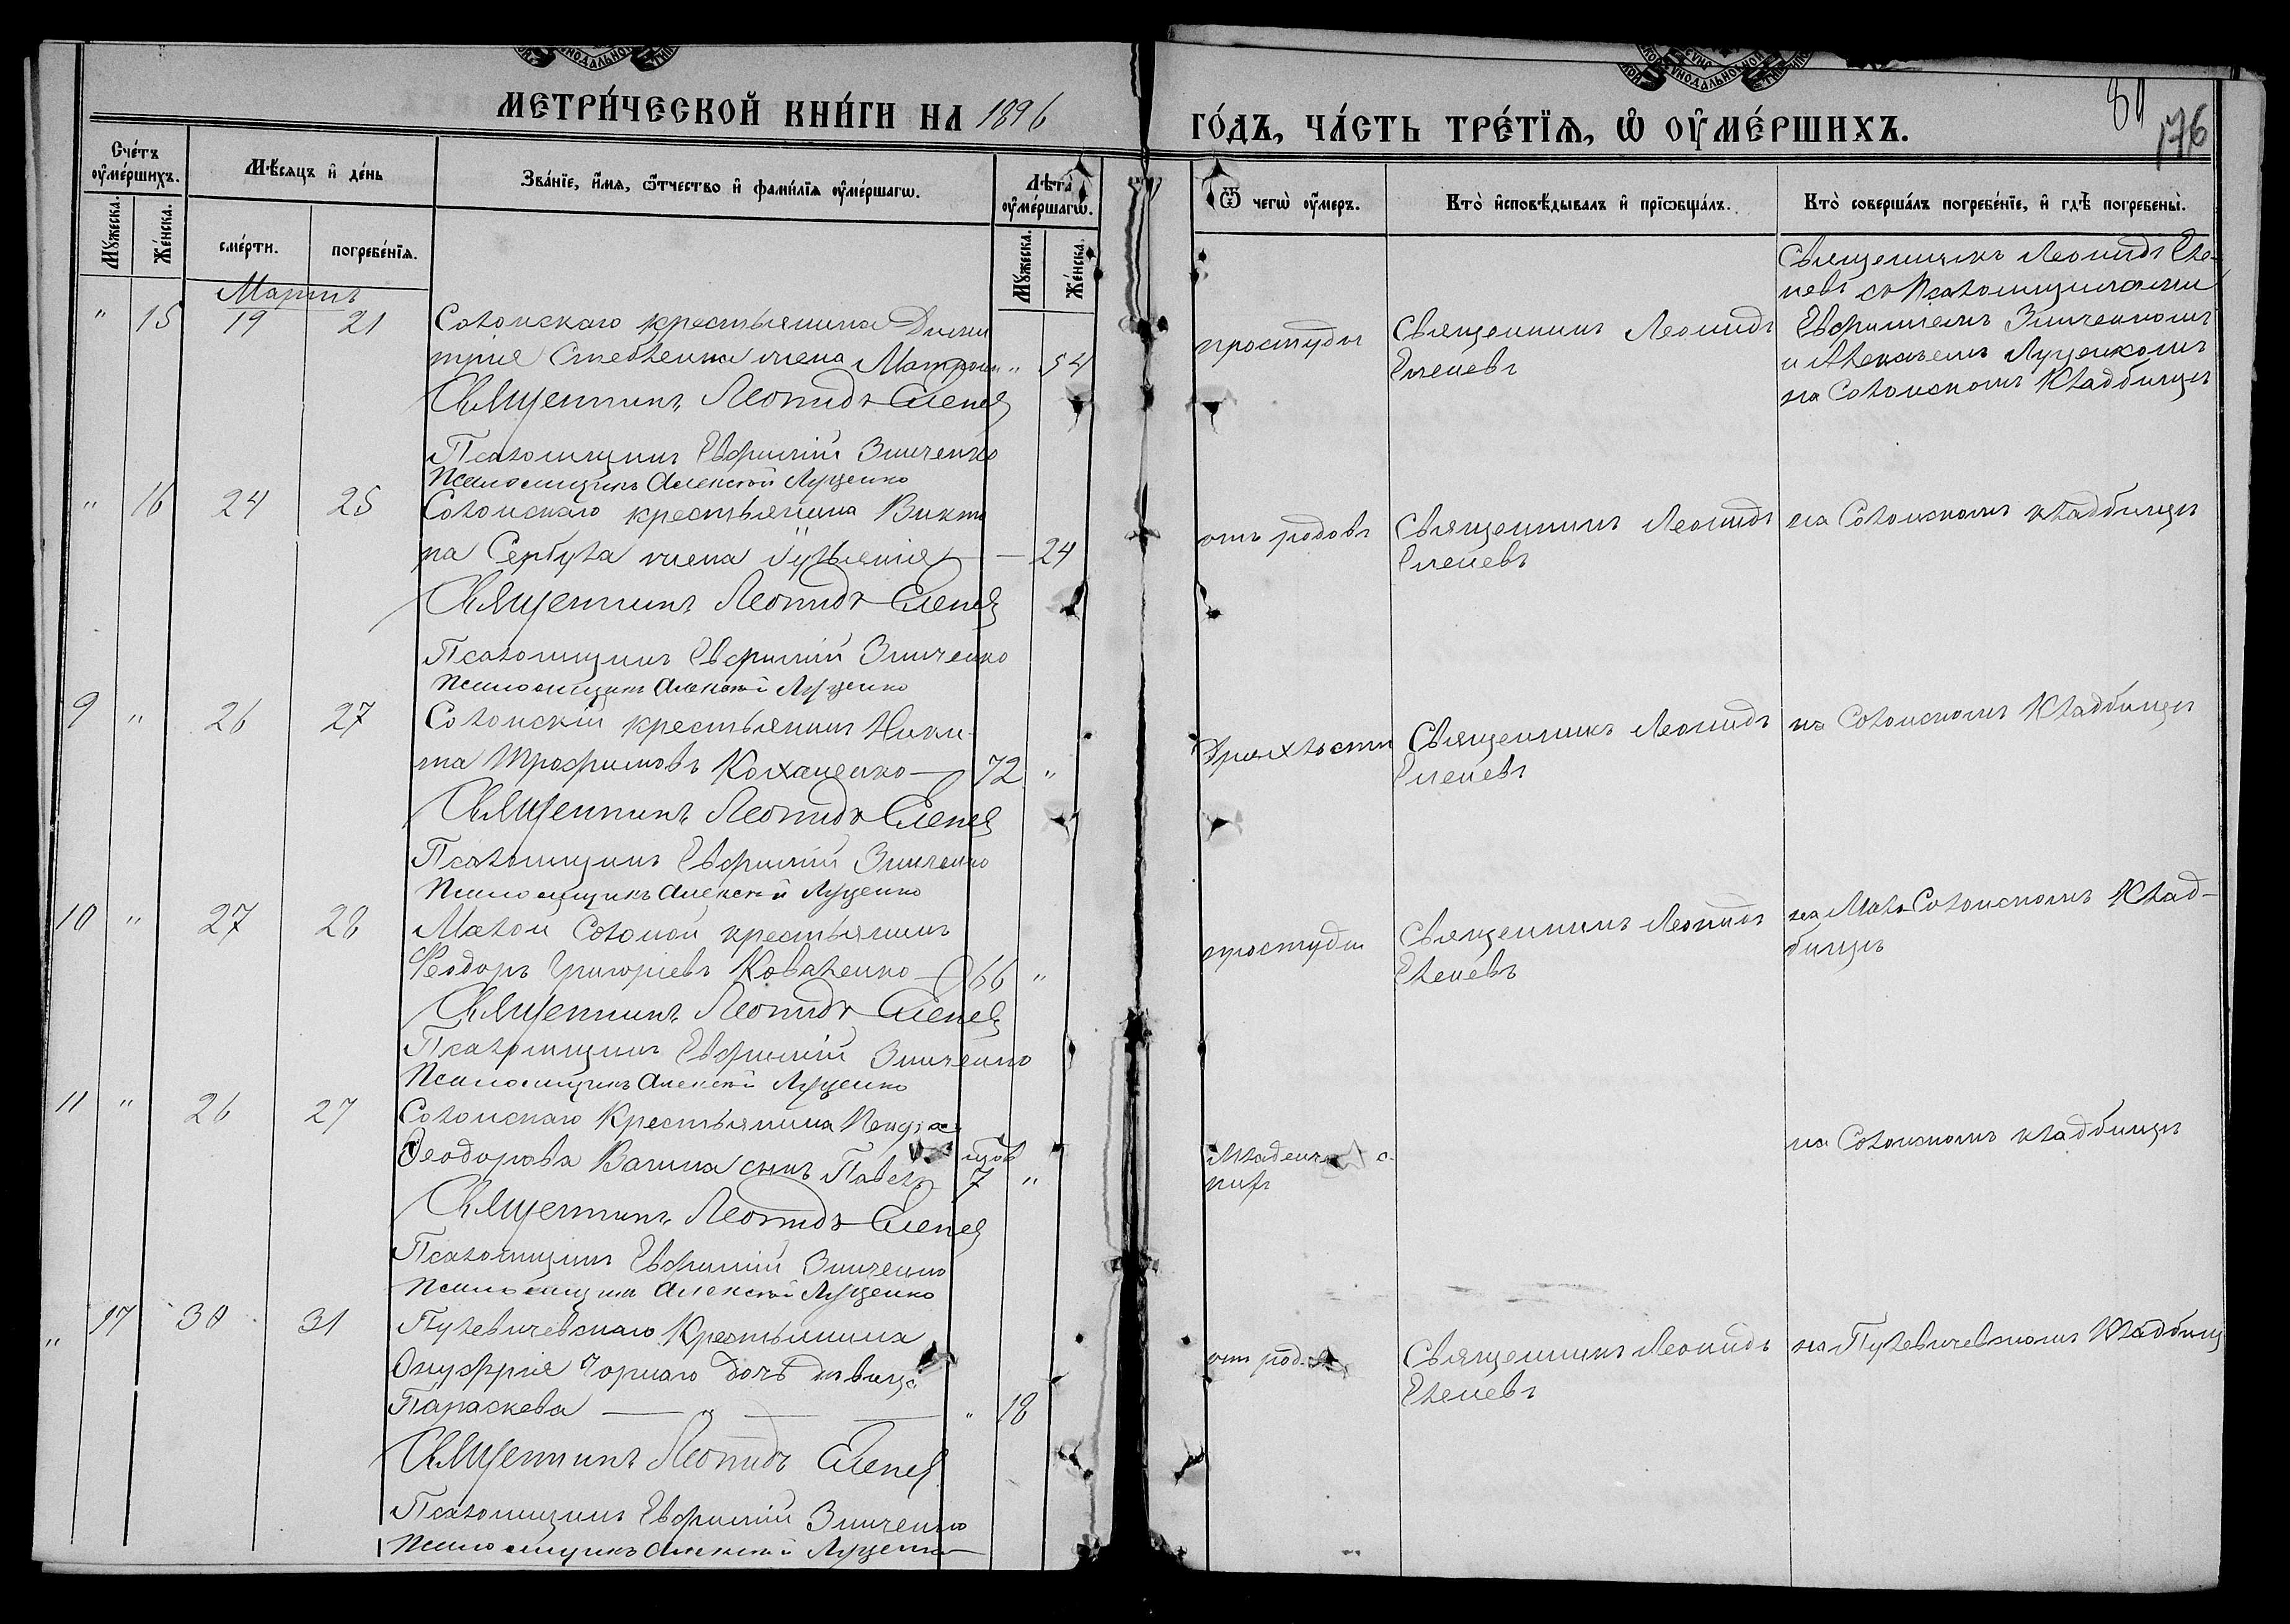 МЕТРИ́ЧЕСКОЙ КНИ́ГИ НА 1896
ГО́ДЪ, ЧА́СТЬ ТРЕ́ТЇѦ, Ѡ҆ ОУ҆МЕ́РШИХЪ.
80
176
Сче́тъ оу҆ме́ршихъ.
Мꙋ́жеска.
Же́нска.
Мѣ́сяцъ и҆ де́нь
сме́рти.
погребе́нїѧ.
Зва́нїе, и҆́мѧ, ѻ҆́тчество и҆ фами́лїѧ оу҆ме́ршагѡ.
Лѣта̀ оу҆ме́ршагѡ.
Мꙋ́жеска.
Же́нска.
Ѿ чегѡ̀ оу҆́меръ.
Кто̀ и҆сповѣ́дывалъ и҆ прїѡбща́лъ.
Кто̀ соверша́лъ погребе́нїе, и҆ гдѣ̀ погребены̀.
Мартъ
" 15 19 21
Солонскаго крестьянина Дими
трія Стебленка жена Матрона " 54
Священникъ Леонидъ Еленев
Псаломщикъ Евфимій Зинченко
Псаломщикъ Алексей Луценко
простуды
Священникъ Леонидъ
Еленевъ
Священникъ Леонидъ Еле-
невъ съ Псаломщиками
Евфимиемъ Зинченкомъ
и Алексѣемъ Луценкомъ
на Солонскомъ Кладбищѣ
" 16 24 25
Солонскаго крестьянина Викто
ра Сербула жена Іуліанія — 24
Священникъ Леонидъ Еленев
Псаломщикъ Евфимій Зинченко
Псаломщикъ Алексей Луценко
отъ родовъ
Священникъ Леонидъ
Еленевъ
на Солонскомъ кладбищѣ
9 " 26 27
Солонскій крестьянинъ Ники
та Трофимовъ Коханенко — 72 "
Священникъ Леонидъ Еленев
Псаломщикъ Евфимій Зинченко
Псаломщикъ Алексей Луценко
Дряхлости
Священникъ Леонидъ
Еленевъ
на Солонскомъ Кладбищѣ
10 " 27 28
Малой Солоной крестьянинъ
Феодоръ Григоріевъ Коваленко — 66 "
Священникъ Леонидъ Еленев
Псаломщикъ Евфимій Зинченко
Псаломщикъ Алексей Луценко
простуды
Священникъ Леонидъ
Еленевъ
на Мало-Солонскомъ Клад-
бищѣ
11 " 26 27
Солонскаго Крестьянина
Феодорова Вагина сынъ Павелъ 7 "
Священникъ Леонидъ Еленев
Псаломщикъ Евфимій Зинченко
Псаломщикъ Алексей Луценко
на Солонскомъ кладбищѣ
" 17 30 31
Пулевичевскаго Крестьянина
Онуфрія Чорнаго дочь девица
Параскева — " — — " 18
Священникъ Леонидъ Еленев
Псаломщикъ Евфимій Зинченко
Псаломщикъ Алексей Луценко
отъ
Священникъ Леонидъ
Еленевъ
на Пулевичевскомъ Кладбищ